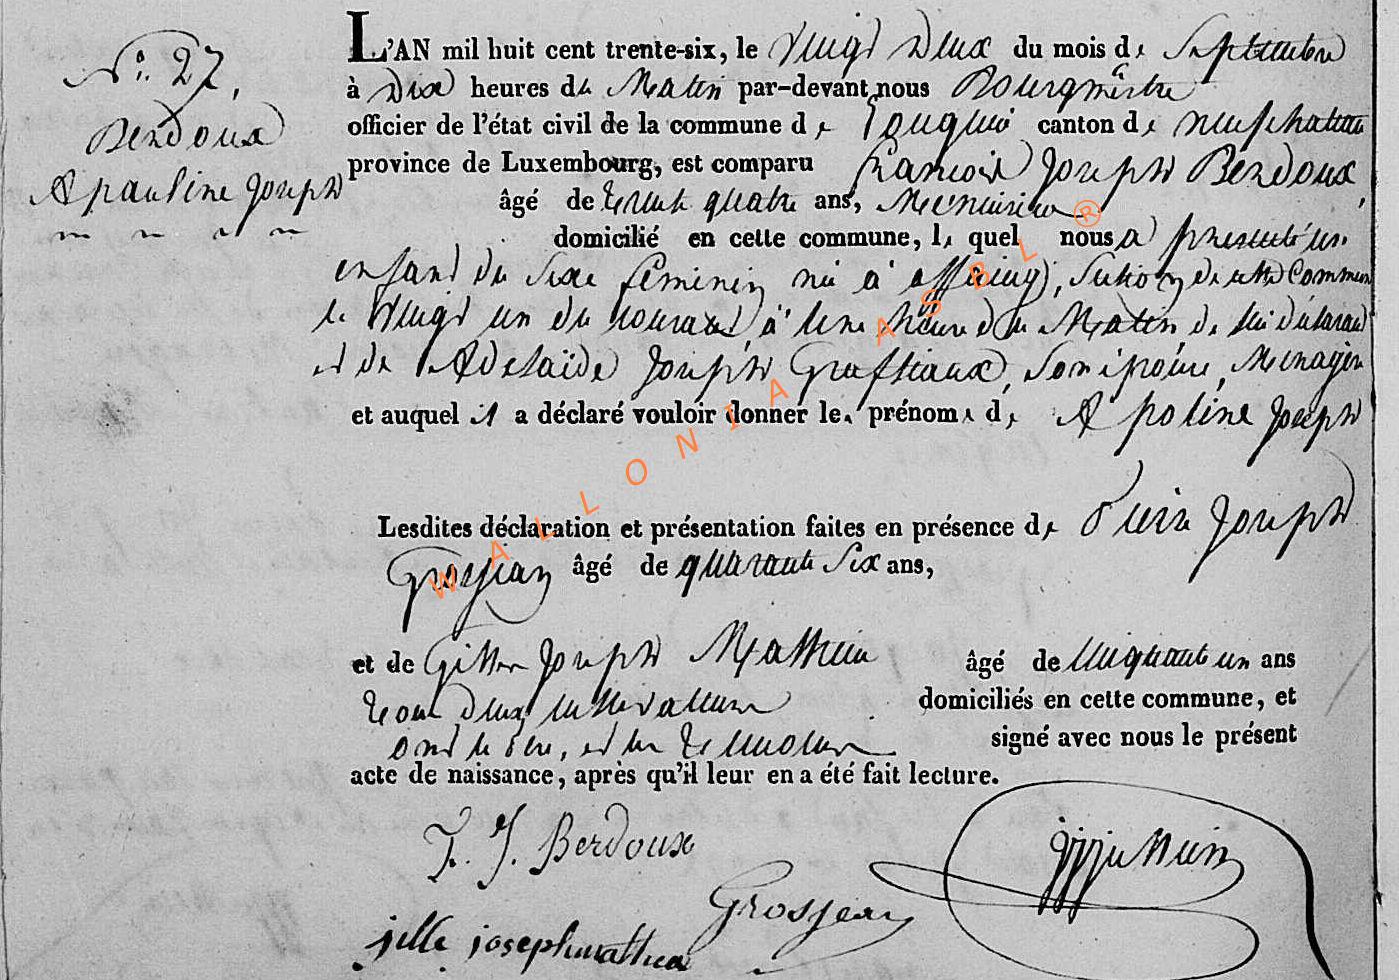 N.° 27,
Berdoux
Apauline Joseph
L'AN mil huit cent trente-six, le Vingt Deux du mois de Septembre
à Dix heures du Matin par-devant nous Bourgmêstre
officier de l'état civil de la commune de canton de neufchateau
province de Luxembourg, est comparu francois Joseph Berdoux,
âgé de trente quatre ans, Menuisier
domicilié en cette commune, le quel nous a presenté un
enfant du Sexe féminin né à offaing, Section de cette Commune
le Vingt un du courant, à Une heure du Matin de lui déclarant
et de Adelaïde Joseph Graftiaux, Son épouse, Menagère
et auquel il a déclaré vouloir donner les prénoms de Apoline Joseph
Lesdites déclaration et présentation faites en présence de Pierre Joseph
Grosjean âgé de quarante Six ans,
et de Joseph Mathieu âgé de Cinquante un ans
tous deux cultivateurs domiciliés en cette commune, et
ont le père, et les témoins signé avec nous le présent
acte de naissance, après qu'il leur en a été fait lecture.
F. J. Berdoux
Grosjean
jille joseph mathieu
WALLONIA ASBL ®